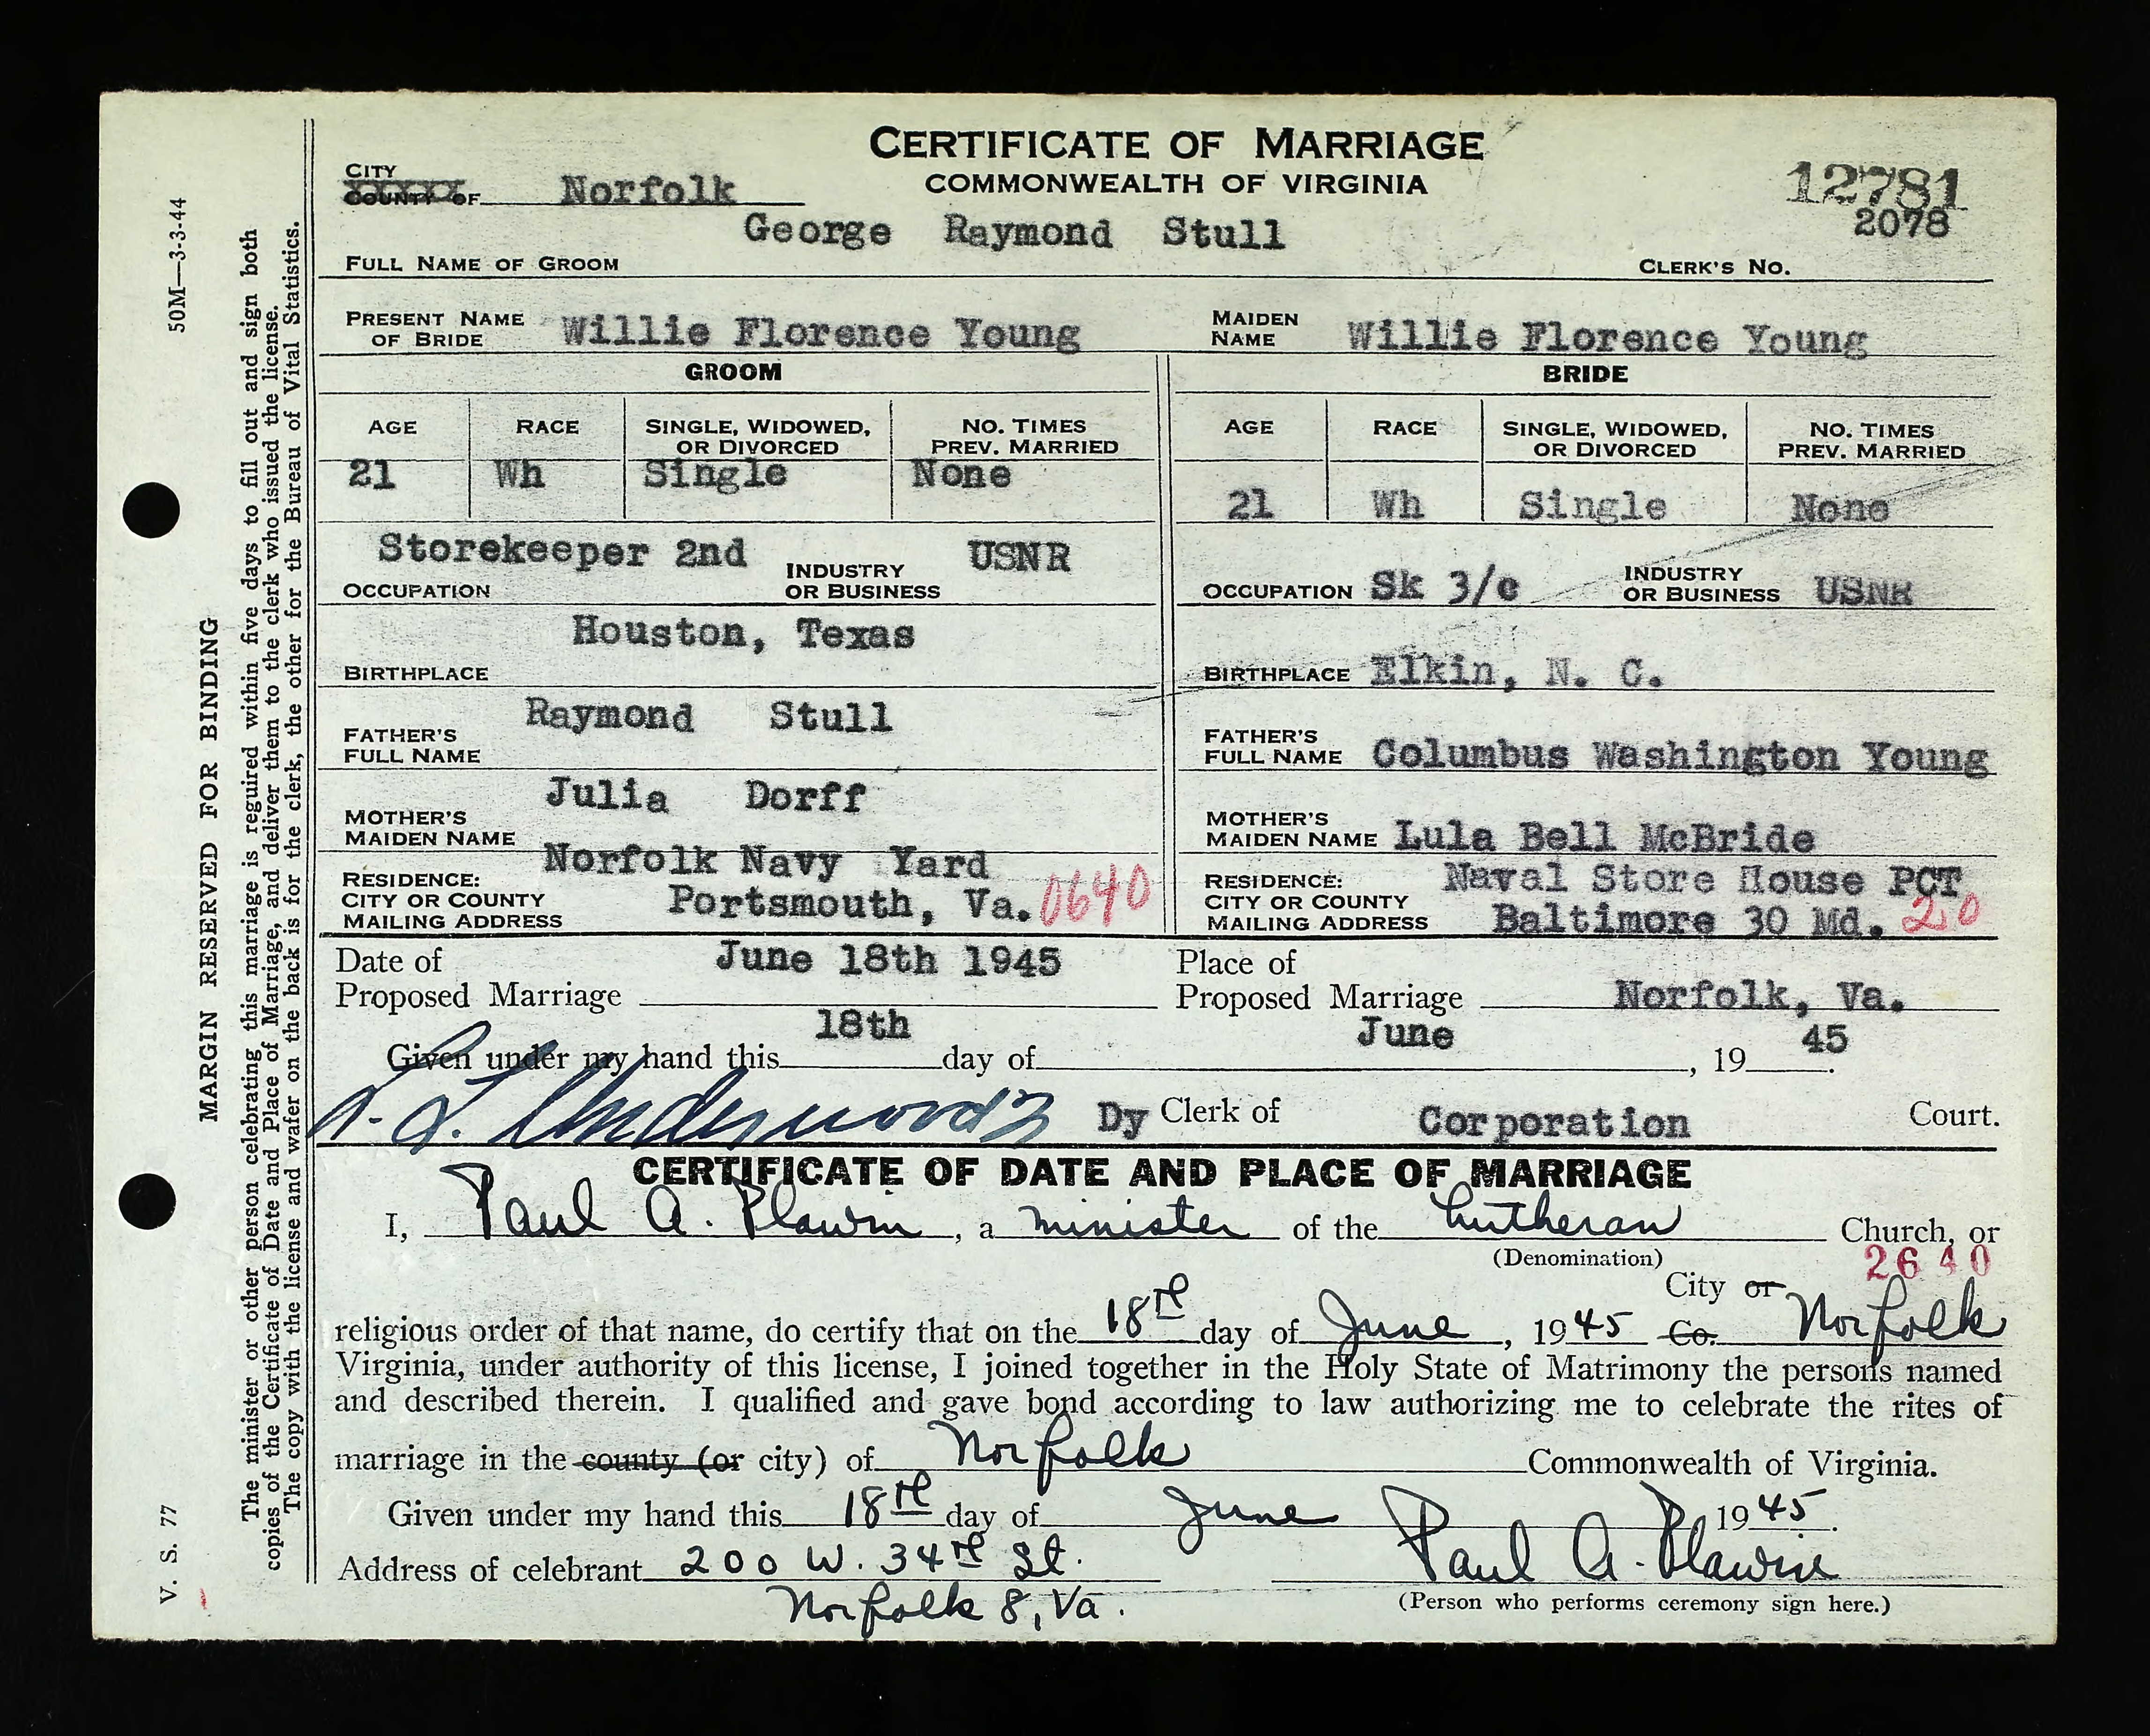 CERTIFICATE OF MARRIAGE
COMMONWEALTH OF VIRGINIA
CITY
COUNTY OF Norfolk
12781
2078
George Raymond Stull
FULL NAME OF GROOM
CLERK'S No.
PRESENT NAME OF BRIDE Willie Florence Young
MAIDEN NAME Willie Florence Young
GROOM
AGE RACE SINGLE, WIDOWED, OR DIVORCED NO. TIMES PREV. MARRIED
21 Wh Single None
Storekeeper 2nd USNR
OCCUPATION INDUSTRY OR BUSINESS
Houston, Texas
BIRTHPLACE
Raymond Stull
FATHER'S FULL NAME
Julia Dorff
MOTHER'S MAIDEN NAME
Norfolk Navy Yard
RESIDENCE:
CITY OR COUNTY Portsmouth, Va. 0640
MAILING ADDRESS
BRIDE
AGE RACE SINGLE, WIDOWED, OR DIVORCED NO. TIMES PREV. MARRIED
21 Wh Single None
OCCUPATION Sk 3/c INDUSTRY OR BUSINESS USNR
BIRTHPLACE Elkin, N. C.
FATHER'S FULL NAME Columbus Washington Young
MOTHER'S MAIDEN NAME Lula Bell McBride
RESIDENCE: Naval Store House PCT
CITY OR COUNTY
MAILING ADDRESS Baltimore 30 Md. 20
Date of
Proposed Marriage June 18th 1945
Place of
Proposed Marriage Norfolk, Va.
Given under my hand this 18th day of June, 1945.
Underwood Dy Clerk of Corporation Court.
CERTIFICATE OF DATE AND PLACE OF MARRIAGE
I, Paul A. Plawin, a minister of the Lutheran Church, or
(Denomination)
2640
City or
religious order of that name, do certify that on the 18th day of June, 1945 Co. Norfolk
Virginia, under authority of this license, I joined together in the Holy State of Matrimony the persons named
and described therein. I qualified and gave bond according to law authorizing me to celebrate the rites of
marriage in the county (or city) of Norfolk Commonwealth of Virginia.
Given under my hand this 18th day of June 1945.
Address of celebrant 200 W. 34th St. Paul A. Plawin
Norfolk 8, Va.
(Person who performs ceremony sign here.)
50M—3-3-44
MARGIN RESERVED FOR BINDING
V. S. 77
The minister or other person celebrating this marriage is reguired within five days to fill out and sign both
copies of the Certificate of Date and Place of Marriage, and deliver them to the clerk who issued the license.
The copy with the license and wafer on the back is for the clerk, the other for the Bureau of Vital Statistics.